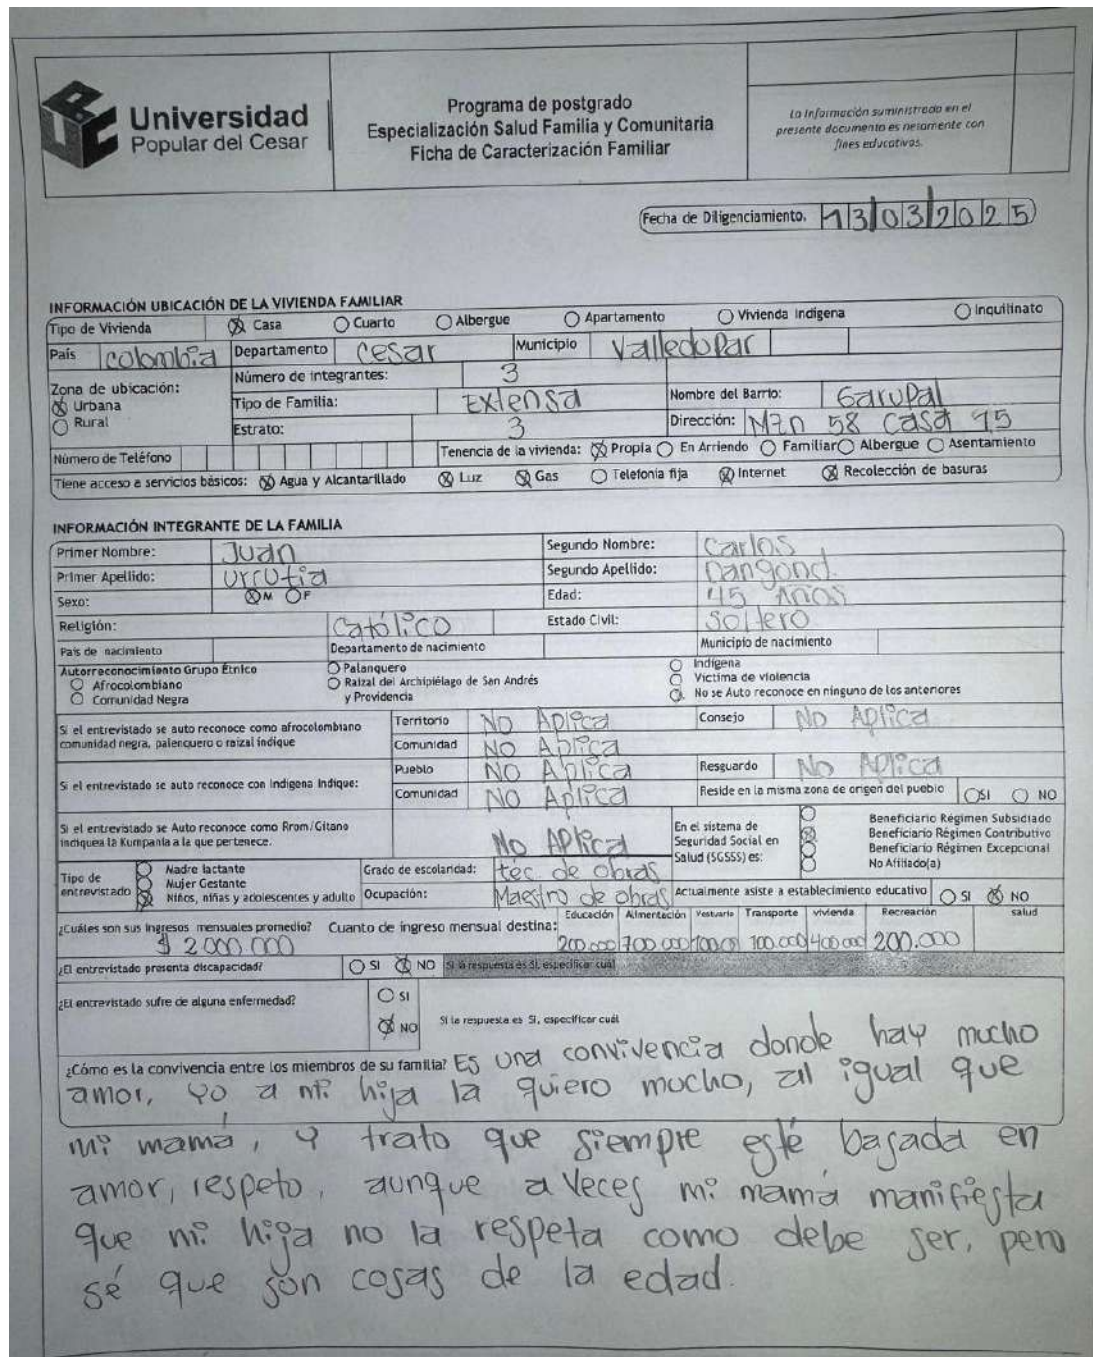 Universidad
Popular del Cesar
Programa de postgrado
Especialización Salud Familia y Comunitaria
Ficha de Caracterización Familiar
La Información suministrada en el
presente documento es netamente con
fines educativos.
Fecha de Diligenciamiento. 13/03/2025
INFORMACIÓN UBICACIÓN DE LA VIVIENDA FAMILIAR
Tipo de Vivienda Casa Cuarto Albergue Apartamento Vivienda Indigena Inquilinato
País colombia Departamento cesar Municipio Valledupar
Zona de ubicación: Número de integrantes: 3
Urbana Tipo de Familia: Extensa Nombre del Barrio: Garupal
Rural Estrato: 3 Dirección: Mzn 58 casa 15
Número de Teléfono Tenencia de la vivienda: Propia En Arriendo Familiar Albergue Asentamiento
Tiene acceso a servicios básicos: Agua y Alcantarillado Luz Gas Telefonía fija Internet Recolección de basuras
INFORMACIÓN INTEGRANTE DE LA FAMILIA
Primer Nombre: Juan Segundo Nombre: Carlos
Primer Apellido: Urrutia Segundo Apellido: Dangond.
Sexo: M F Edad: 45 Años
Religión: católico Estado Civil: Soltero
País de nacimiento Departamento de nacimiento Municipio de nacimiento
Autorreconocimiento Grupo Étnico Palanquero Indígena
Afrocolombiano Raizal del Archipiélago de San Andrés Víctima de violencia
Comunidad Negra y Providencia No se Auto reconoce en ninguno de los anteriores
Si el entrevistado se auto reconoce como afrocolombiano Territorio No Aplica Consejo No Aplica
comunidad negra, palenquero o raizal indique Comunidad No Aplica
Si el entrevistado se auto reconoce con Indigena Indique: Pueblo No Aplica Resguardo No Aplica
Comunidad No Aplica Reside en la misma zona de origen del pueblo SI NO
Si el entrevistado se Auto reconoce como Rrom/Gitano
indiquea la Kumpania a la que pertenece. No Aplica
En el sistema de
Seguridad Social en
Salud (SGSSS) es:
Beneficiario Régimen Subsidiado
Beneficiario Régimen Contributivo
Beneficiario Régimen Excepcional
No Afiliado(a)
Tipo de
entrevistado
Madre lactante
Mujer Gestante
Niños, niñas y adolescentes y adulto
Grado de escolaridad: téc. de obras
Ocupación: Maestro de obras Actualmente asiste a establecimiento educativo SI NO
¿Cuáles son sus ingresos mensuales promedio? Cuanto de ingreso mensual destina: Educación Alimentación Vestuario Transporte vivienda Recreación salud
$ 2000.000 200.000 700.000 100.00 100.000 400.000 200.000
¿El entrevistado presenta discapacidad? SI NO Si la respuesta es SI, especificar cuál
¿El entrevistado sufre de alguna enfermedad? SI
NO Si la respuesta es SI, especificar cuál
¿Cómo es la convivencia entre los miembros de su familia? Es una convivencia donde hay mucho
amor, yo a mi hija la quiero mucho, al igual que
mi mamá, y trato que siempre esté basada en
amor, respeto, aunque a veces mi mamá manifiesta
que mi hija no la respeta como debe ser, pero
sé que son cosas de la edad.